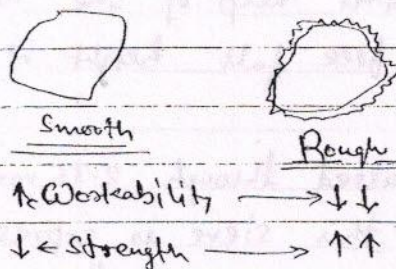 Smooth
Rough
↑ Workability → ↓↓
↓ ← Strength → ↑↑